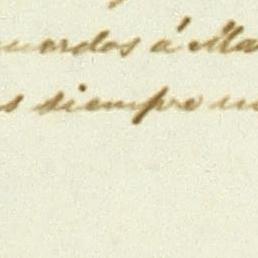 uerdos á Ma
s siempre un